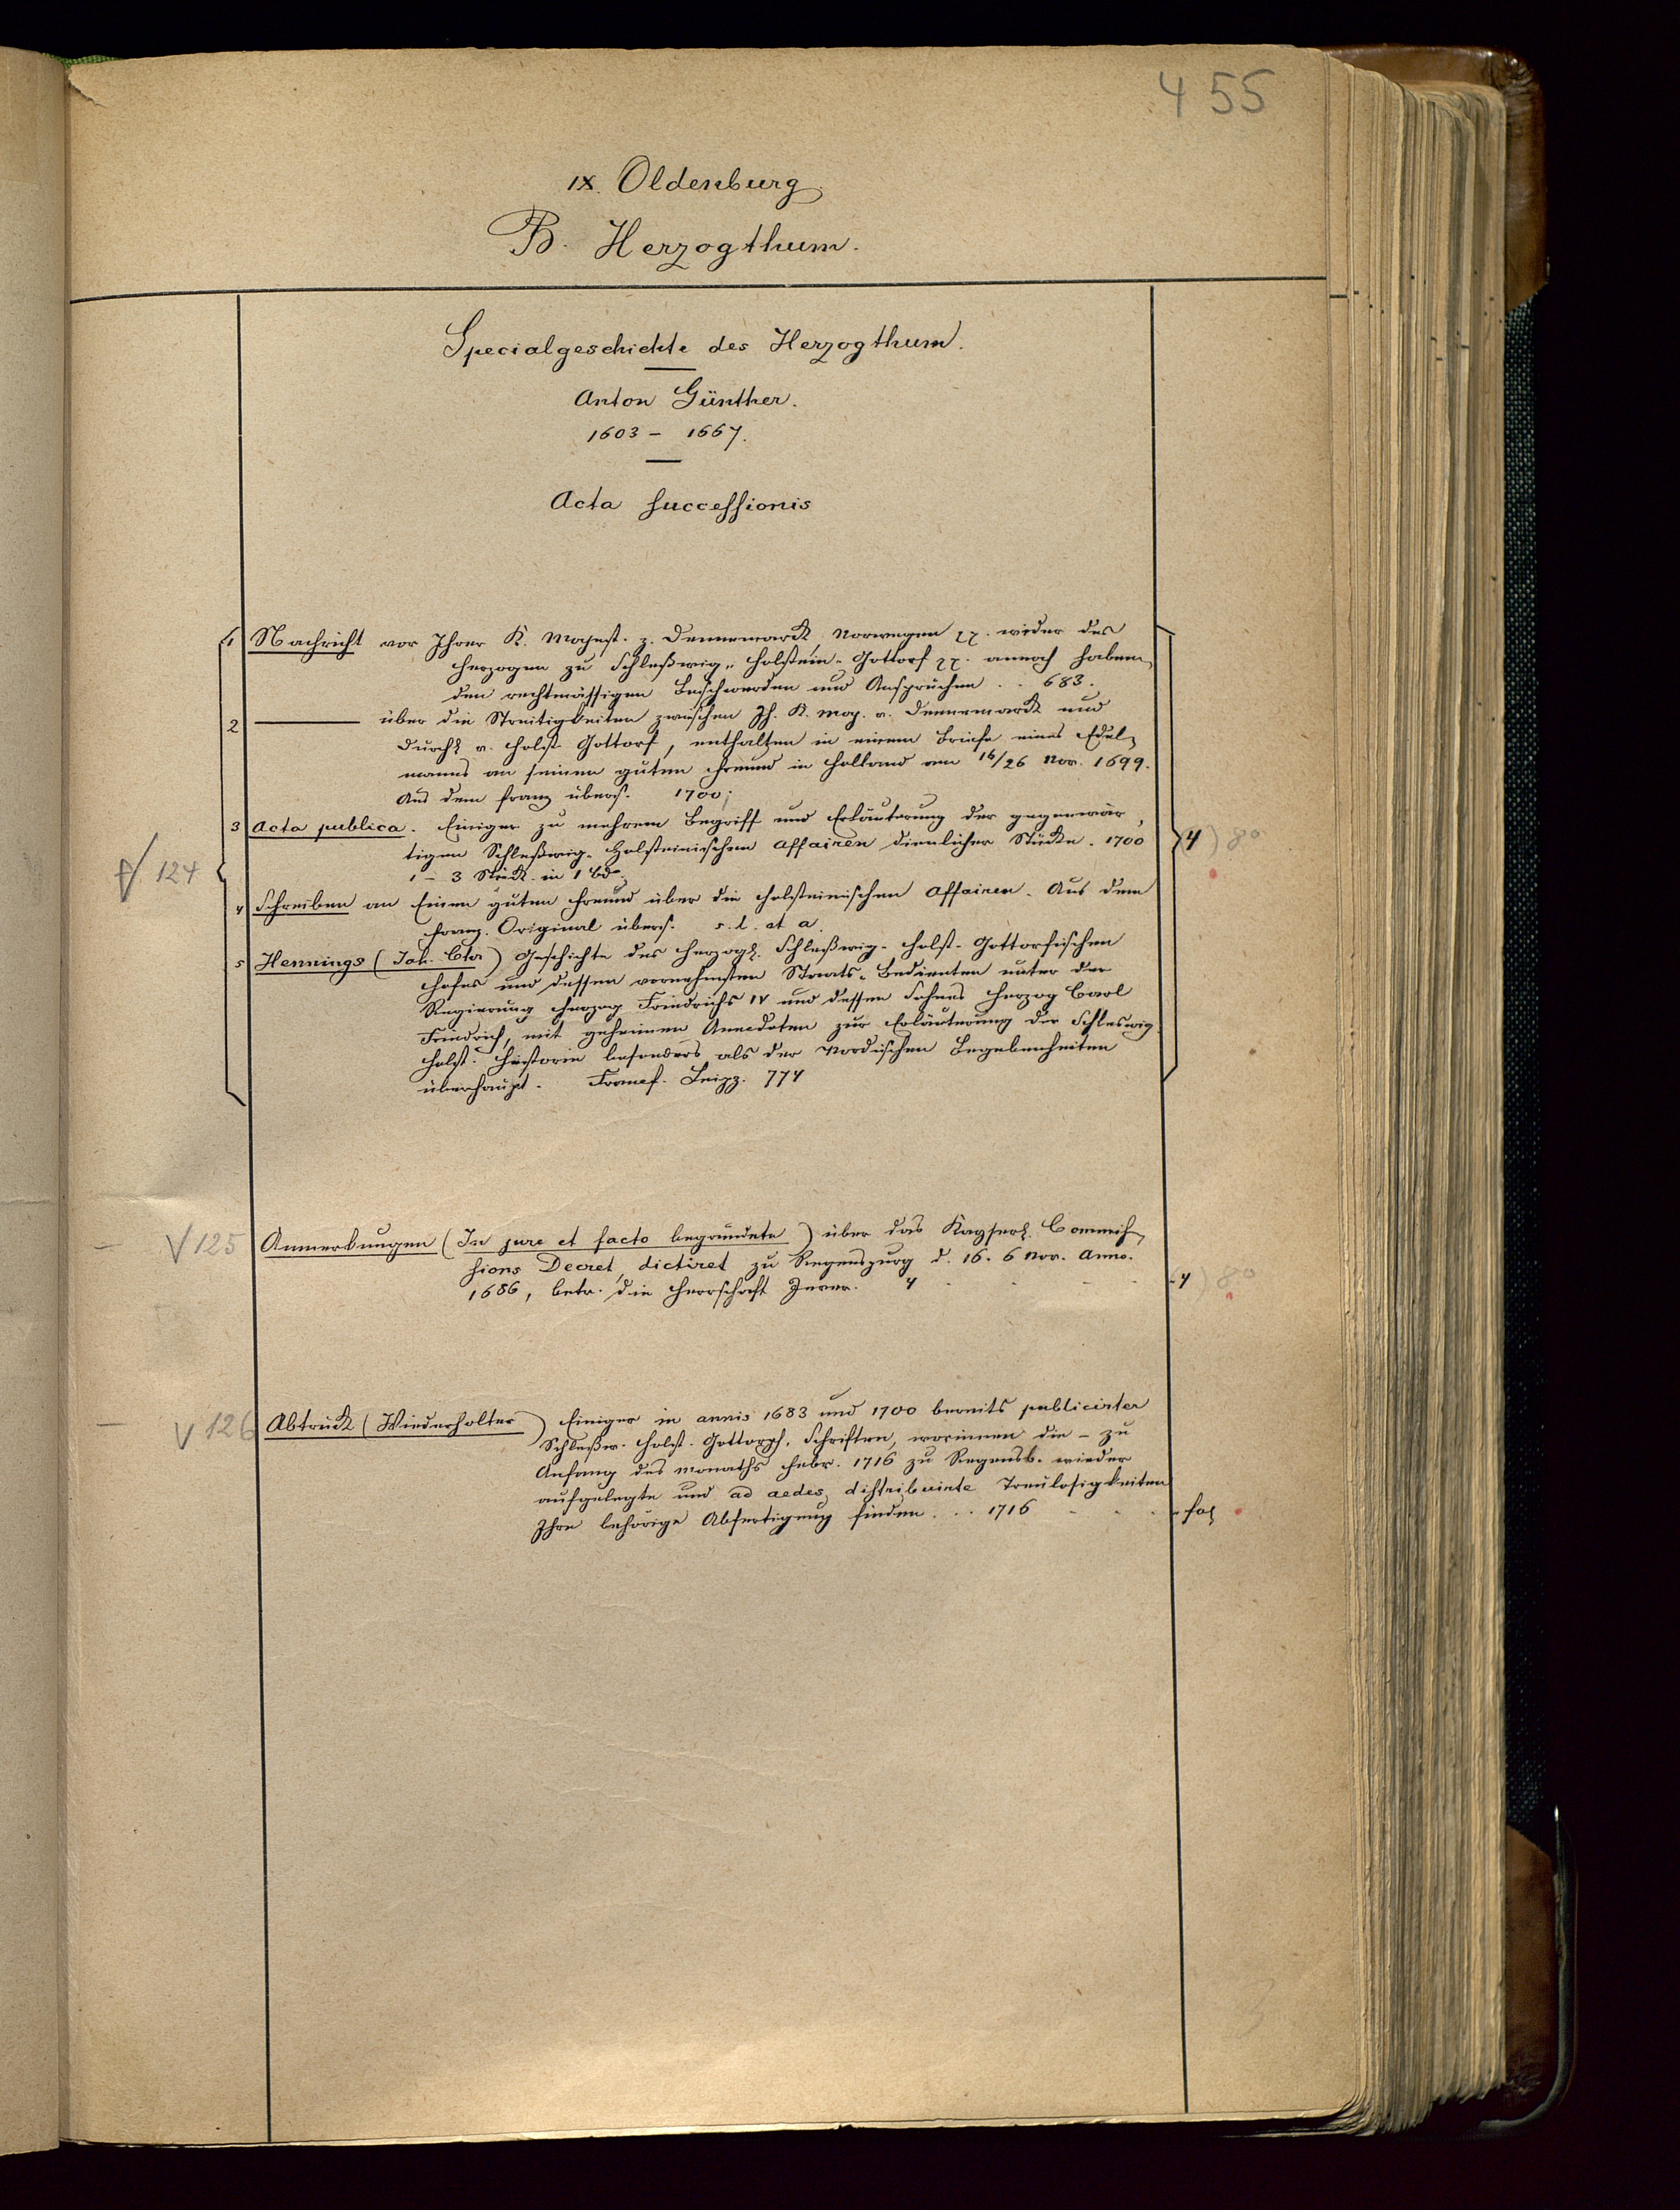 455
IX. Oldenburg.
B. Herzogthum.
Specialgeschichte des Herzogthum.
Anton Günther.
1603 - 1667.
Acta successionis
124
1 Nachricht vor Ihrer K. Mayest. z. Dennemarck, Norwegen wider des
Herzogen zu Schleßwig-Holstein-Gottorf annoch haben
den rechtmässigen Beschwerden und Ansprüchen . . 683.
2 über die Streitigkeiten zwischen Ih. K. May. v. Dennemarck und
Durchl v. Holst. Gottorf, enthalten in einem Briefe eines Edel-
manns an seinen guten Freund in Holland vom 16/26 Nov. 1699.
Aus dem franz übers. 1700;
3 Acta publica. Einiger zu mehrem Begriff und Erläuterung der gegenwär-
tigen Schleßwig-Holsteinischen Affairen dienlicher Stücke. 1700
1-3 Stück in 1 Bde.
4) 8°
4 Schreiben an Einen guten Freund über die Holsteinischen Affairen. Aus dem
Franz. Original übers. s. l. et a.
5 Hennings (Joh. Chr) Geschichte des Herzogl. Schleßwig-Holst-Gottorfischen
Hofes und dessen vornehmsten Staats-Bedienten unter der
Regierung Herzog Friedrichs IV und dessen Sohnes Herzog Carl
Friedrich, mit geheimen Anecdoten zur Erläuterung der Schleswig
Holst. Historie besonders als der Nordischen Begebenheiten
überhaupt. Francf. Leipz. 774
V 125 Anmerkungen (In jure et facto begründete) über das Kayserl. Commis-
sions Decret, dictiret zu Regenspurg d. 16. 6 Nov. Anno.
1686, betr. die Herrschaft Jever. 4 - 4) 8°
V 126 Abtruck (Wiederholter) Einiger in annis 1683 und 1700 bereits publicirter
Schleßw. Holst. Gottorph. Schriften, worinnen die - zu
Anfang des Monaths Febr. 1716 zu Regensb. wieder
aufgelegte und ad aedes distribuirte Treulosigkeiten
Ihre behörige Abfertigung finden. . . 1716 - fol